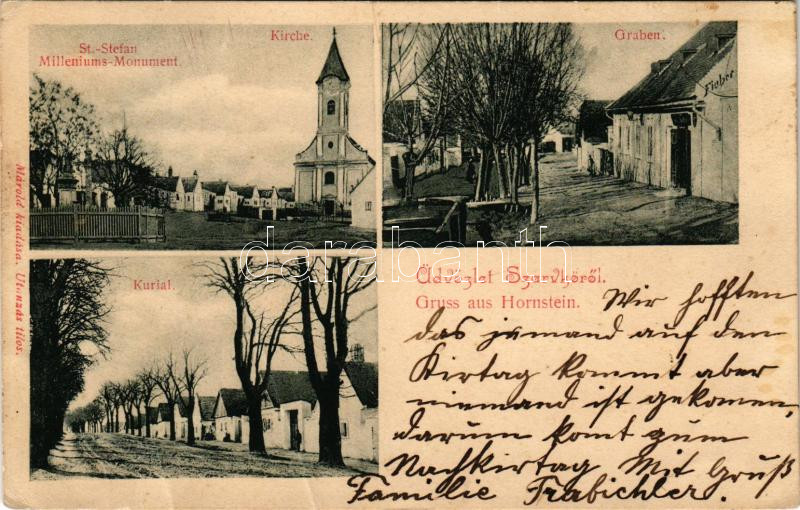 St.-Stefan
Milleniums-Monument.
Kirche.
Graben.
Kurial.
Márold kiadása. Utánzás tilos.
darabanth
Üdvözlet Szarvkőről.
Gruss aus Hornstein.
Wir hofften
das jemand auf den
Kirtag kommt aber
niemand ist gekomen,
darum komt zum
Nachkirtag Mit Gruß
Familie Trabichler.